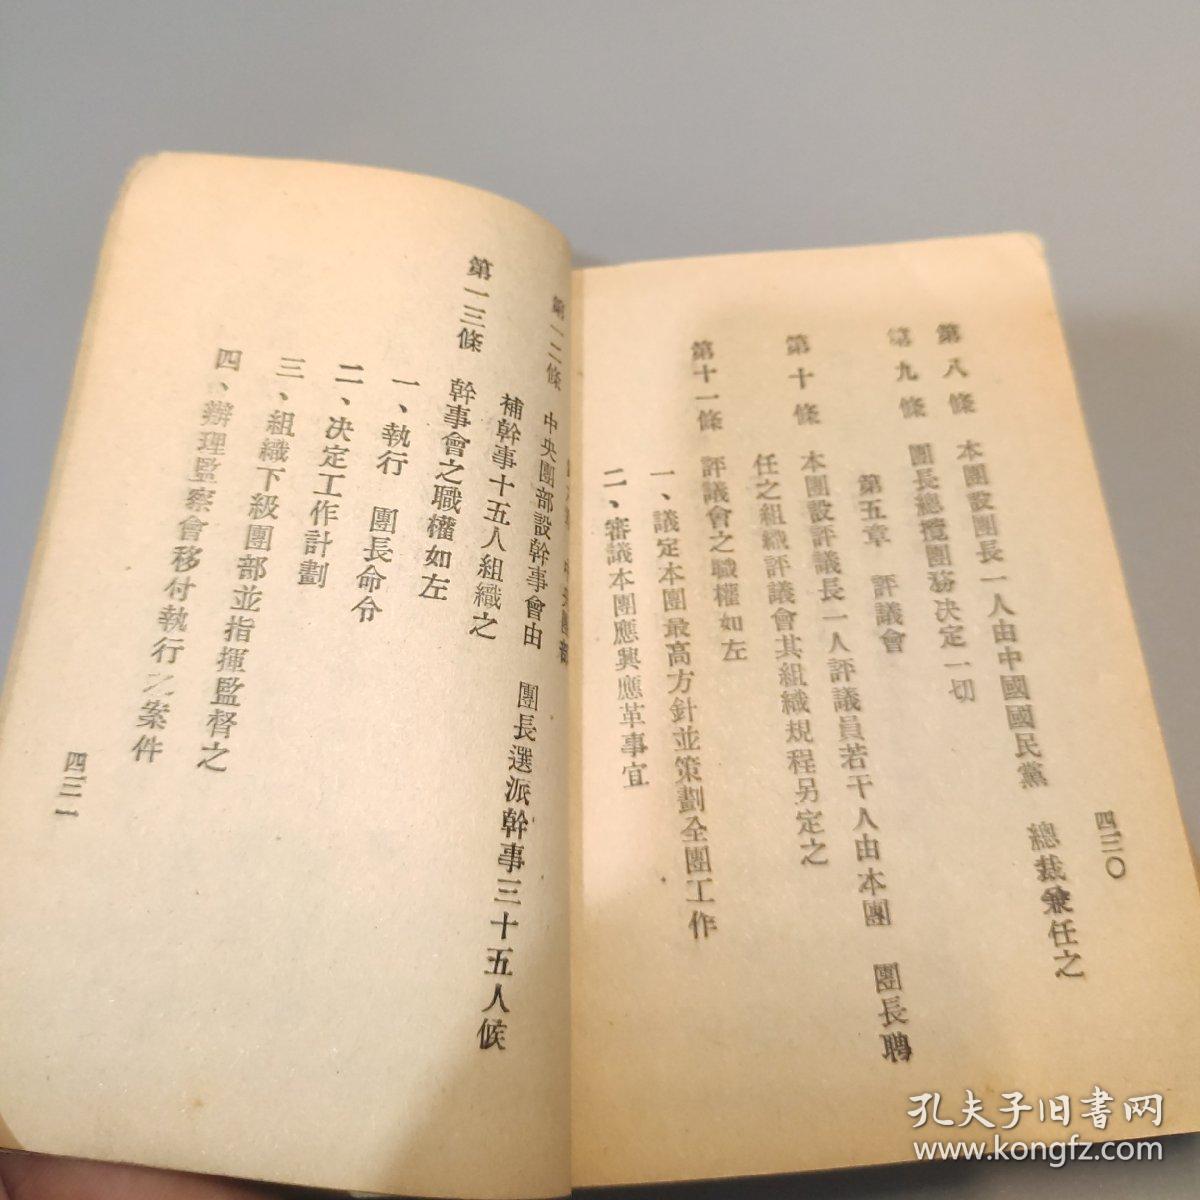 四三〇
第八條　本團設團長一人由中國國民黨　總裁兼任之
第九條　團長總攬團務決定一切
第五章　評議會
第十條　本團設評議長一人評議員若干人由本團　團長聘
任之組織評議會其組織規程另定之
第十一條　評議會之職權如左
一、議定本團最高方針並策劃全團工作
二、審議本團應興應革事宜
團部
第一二條　中央團部設幹事會由　團長選派幹事三十五人候
補幹事十五人組織之
第一三條　幹事會之職權如左
一、執行　團長命令
二、決定工作計劃
三、組織下級團部並指揮監督之
四、辦理監察會移付執行之案件
四三一
孔夫子旧書网
www.kongfz.com